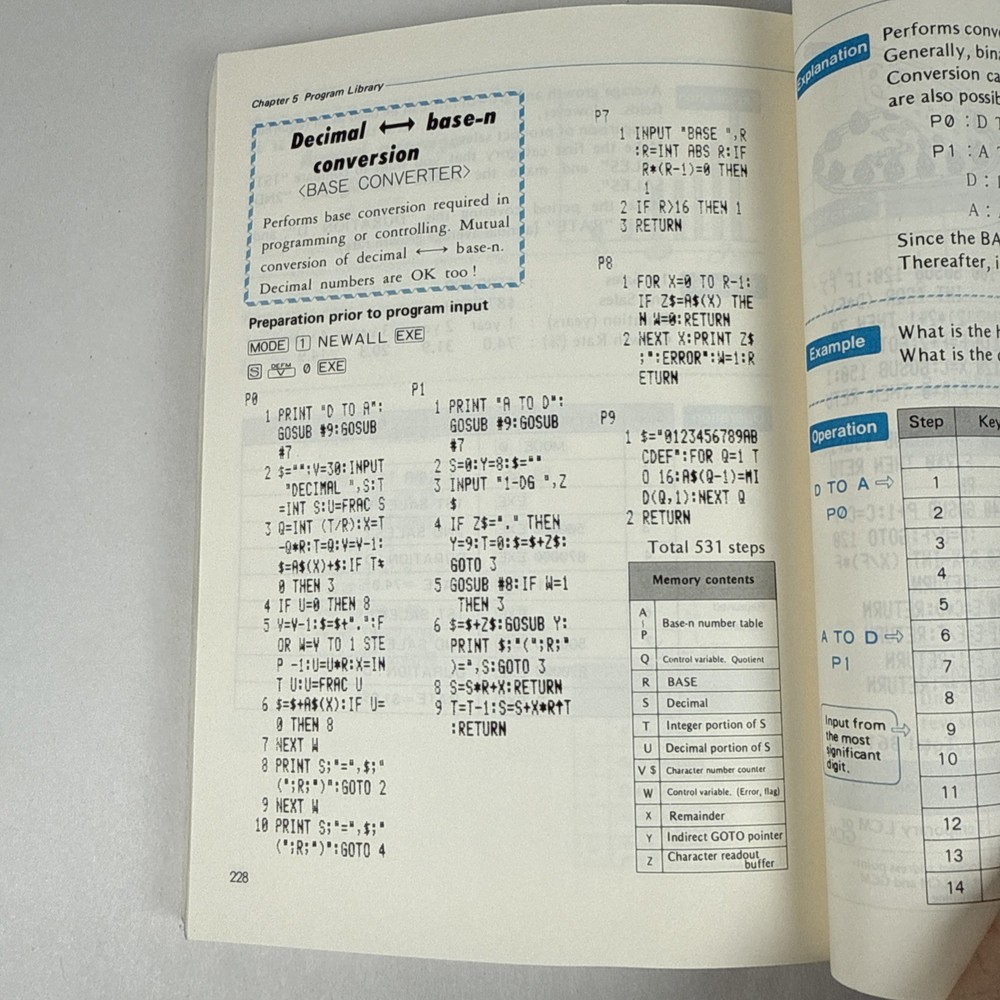 Chapter 5 Program Library
Decimal ⟷ base-n
conversion
<BASE CONVERTER>
Performs base conversion required in
programming or controlling. Mutual
conversion of decimal ⟷ base-n.
Decimal numbers are OK too !
Preparation prior to program input
MODE 1 NEWALL EXE
S DEFM 0 EXE
P0
1 PRINT "D TO A":
GOSUB #9:GOSUB
#7
2 $="":V=30:INPUT
"DECIMAL ",S:T
=INT S:U=FRAC S
3 Q=INT (T/R):X=T
-Q*R:T=Q:V=V-1:
$=A$(X)+$:IF T≠
0 THEN 3
4 IF U=0 THEN 8
5 V=V-1:$=$+".":F
OR W=V TO 1 STE
P -1:U=U*R:X=IN
T U:U=FRAC U
6 $=$+A$(X):IF U=
0 THEN 8
7 NEXT W
8 PRINT S;"=",$;"
(";R;")":GOTO 2
9 NEXT W
10 PRINT S;"=",$;"
(";R;")":GOTO 4
228
P1
1 PRINT "A TO D":
GOSUB #9:GOSUB
#7
2 S=0:Y=8:$=""
3 INPUT "1-DG ",Z
$
4 IF Z$="." THEN
Y=9:T=0:$=$+Z$:
GOTO 3
5 GOSUB #8:IF W=1
THEN 3
6 $=$+Z$:GOSUB Y:
PRINT $;"(";R;"
)=",S:GOTO 3
8 S=S*R+X:RETURN
9 T=T-1:S=S+X*R↑T
:RETURN
P7
1 INPUT "BASE ",R
:R=INT ABS R:IF
R*(R-1)=0 THEN
1
2 IF R>16 THEN 1
3 RETURN
P8
1 FOR X=0 TO R-1:
IF Z$=A$(X) THE
N W=0:RETURN
2 NEXT X:PRINT Z$
;":ERROR":W=1:R
ETURN
P9
1 $="0123456789AB
CDEF":FOR Q=1 T
O 16:A$(Q-1)=MI
D(Q,1):NEXT Q
2 RETURN
Total 531 steps
Memory contents
A
~
P Base-n number table
Q Control variable. Quotient
R BASE
S Decimal
T Integer portion of S
U Decimal portion of S
V $ Character number counter
W Control variable. (Error, flag)
X Remainder
Y Indirect GOTO pointer
Z Character readout
buffer
Explanation
Performs conv
Generally, bina
Conversion ca
are also possib
P0 : D T
P1 : A
D :
A :
Since the BA
Thereafter, i
Example
What is the
What is the
Operation
Step Key
D TO A ⇨ 1
P0 2
3
4
5
A TO D ⇨ 6
P1 7
8
Input from
the most
significant
digit.
9
10
11
12
13
14